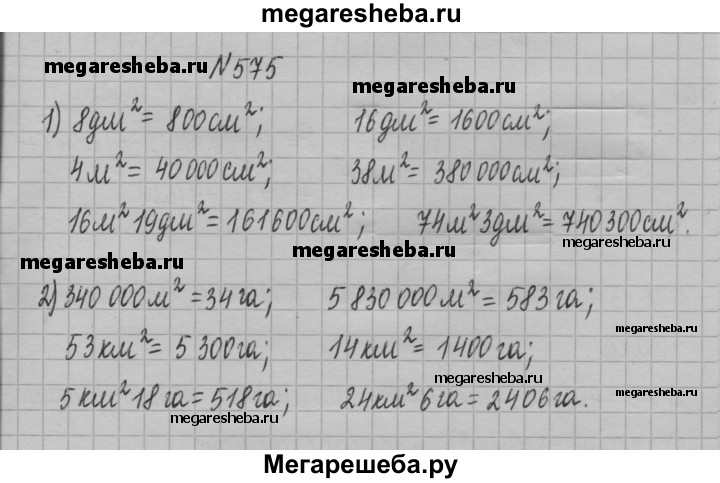 megaresheba.ru
megaresheba.ru №575
megaresheba.ru
1) 8дм²= 800см²; 16дм²= 1600см²;
4м²= 40 000см²; 38м²= 380 000см²;
16м² 19дм²= 161600см²; 74м² 3дм²= 740 300см².
megaresheba.ru
megaresheba.ru megaresheba.ru
2) 340 000м²=34га; 5 830 000м²= 583га;
megaresheba.ru
53км²= 5 300га; 14км²= 1400га;
megaresheba.ru
5км² 18га=518га; 24км² 6га=2406га.
megaresheba.ru megaresheba.ru
Мегарешеба.ру